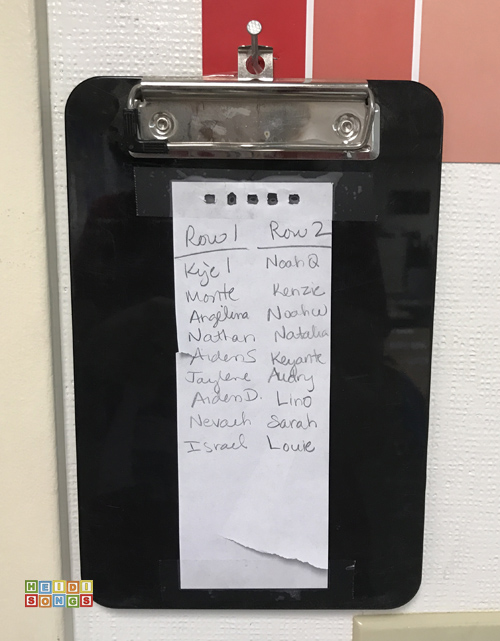 Row 1 Row 2
Kyjel Noah Q
Monte Kenzie
Angelina Noah W
Nathan Natalia
Aiden S Keyante
Jaylene Audry
Aiden D. Lino
Nevaeh Sarah
Israel Louie
HEIDI
SONGS